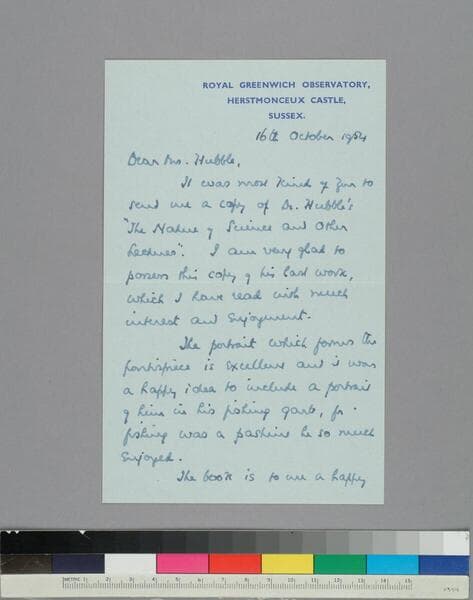 ROYAL GREENWICH OBSERVATORY,
HERSTMONCEUX CASTLE,
SUSSEX.
16th October 1954
Dear Mrs. Hubble,
It was most kind of you to
send me a copy of Dr. Hubble's
"The Nature of Science and Other
Lectures". I am very glad to
possess this copy of his last work,
which I have read with much
interest and enjoyment.
The portrait which forms the
frontispiece is excellent and it was
a happy idea to include a portrait
of him in his fishing garb, for
fishing was a pastime he so much
enjoyed.
The book is to me a happy
METRIC 1 2 3 4 5 6 7 8 9 10 11 12 13 14 15